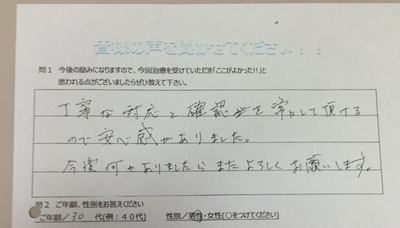 皆様の声を聞かせてください!!
問1 今後の励みになりますので、今回治療を受けていただき「ここがよかった!!」と
思われる点がございましたらぜひ教えて下さい。
丁寧な対応と確認等を常にして頂ける
ので安心感がありました。
今後何かありましたらまたよろしくお願いします。
問2 ご年齢、性別をお答えください
ご年齢/30 代(例:40代) 性別/男性・女性(○をつけてください)